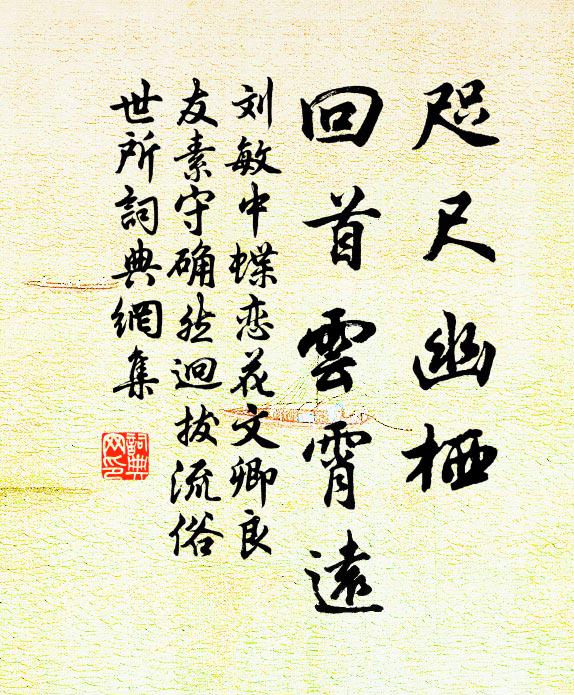 咫尺幽栖
回首雲霄遠
刘敏中蝶恋花文卿良
友素守确然迥拔流俗
世所詞典網集
詞典
网印